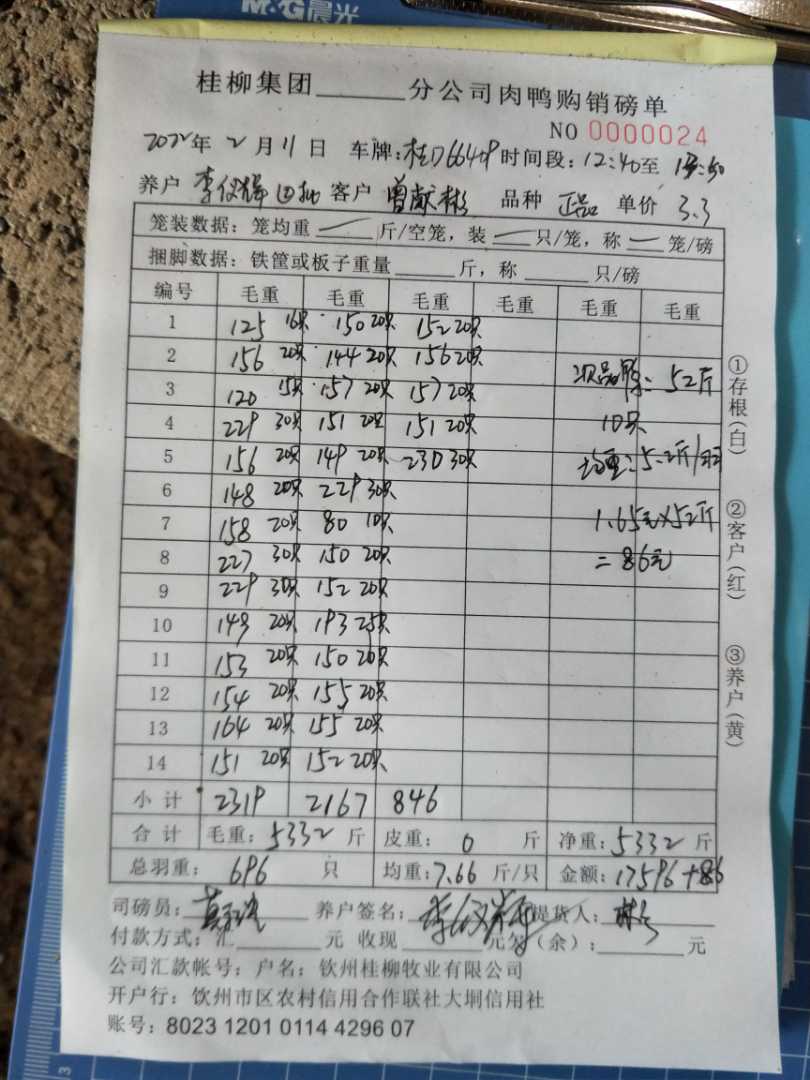 M&G晨光
桂柳集团______分公司肉鸭购销磅单
NO 0000024
2022年 2月11日 车牌: 时间段:12:40至
养户 李仪辉四批 客户 曾献彬 品种 正品 单价 3.3
笼装数据:笼均重 — 斤/空笼,装 — 只/笼,称 — 笼/磅
捆脚数据:铁筐或板子重量______斤,称______只/磅
编号 毛重 毛重 毛重 毛重 毛重 毛重
1 125 16只 150 20只 152 20只
2 156 20只 144 20只 156 20只 次品鸭:52斤
3 120 15只 157 20只 157 20只
4 229 30只 151 20只 151 20只 10只
5 156 20只 149 20只 230 30只 均重:5.2斤/羽
6 148 20只 229 30只
7 158 20只 80 10只 1.65元×52斤
8 227 30只 150 20只 =86元
9 229 30只 152 20只
10 149 20只 193 25只
11 153 20只 150 20只
12 154 20只 155 20只
13 164 20只 155 20只
14 151 20只 152 20只
小计 2319 2167 846
合计 毛重:5332斤 皮重:0斤 净重:5332斤
总羽重:696只 均重:7.66斤/只 金额:17596+86
司磅员: 养户签名:李仪辉 提货人:
付款方式:汇______元 收现______元欠(余):______元
公司汇款帐号:户名:钦州桂柳牧业有限公司
开户行:钦州市区农村信用合作联社大垌信用社
账号:8023 1201 0114 4296 07
①存根(白)
②客户(红)
③养户(黄)